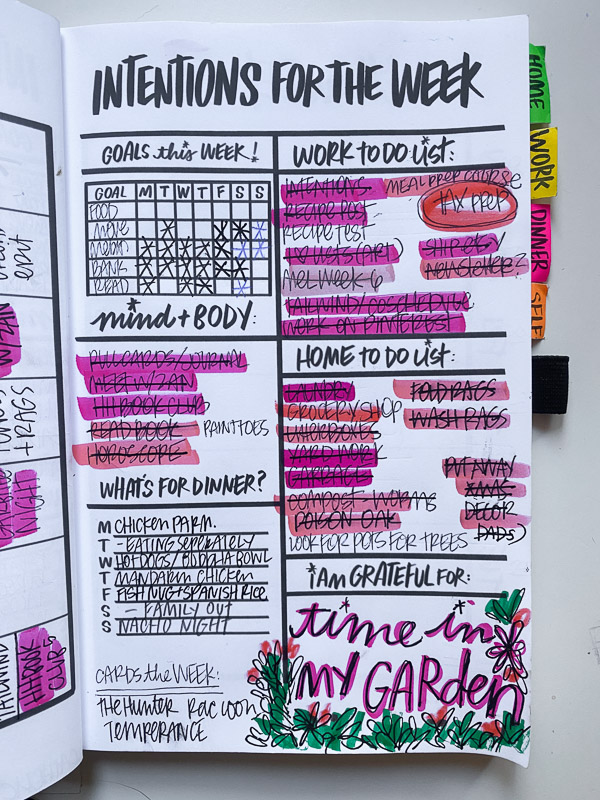 INTENTIONS FOR THE WEEK
GOALS this WEEK!
GOAL M T W T F S S
FOOD
MOVE
MEDITN
BANK
READ
mind + BODY:
PULL CARDS/JOURNAL
MEET W/ZAN
HH BOOK CLUB
READ BOOK PAINT TOES
HOROSCOPE
WHAT'S FOR DINNER?
M CHICKEN PARM.
T - EATING SEPERATELY
W HOT DOGS/BUDDHA BOWL
T MANDARIN CHICKEN
F FISH NUG + SPANISH RICE
S - FAMILY OUT
S NACHO NIGHT
CARDS the WEEK:
THE HUNTER RACCOON
TEMPERANCE
WORK TO DO LIST:
INTENTIONS MEAL PREP COURSE
RECIPE POST TAX PREP
RECIPE TEST
LISTS (ART) SHIP ETSY
MEL WEEK 6 NEWSLETTER?
TAILWIND/COSCHEDULE
WORK ON PINTEREST
HOME TO DO LIST:
LAUNDRY FOLD RAGS
GROCERY SHOP WASH RAGS
YARD WORK
GARBAGE PUT AWAY
COMPOST WORMS XMAS
POISON OAK DECOR
LOOK FOR POTS FOR TREES DADS)
I AM GRATEFUL FOR:
time in
MY GARDEN
HOME
WORK
DINNER
SELF
+ RAGS
W/ZAN
NIGHT
TAILWIND
HH BOOK
CLUB